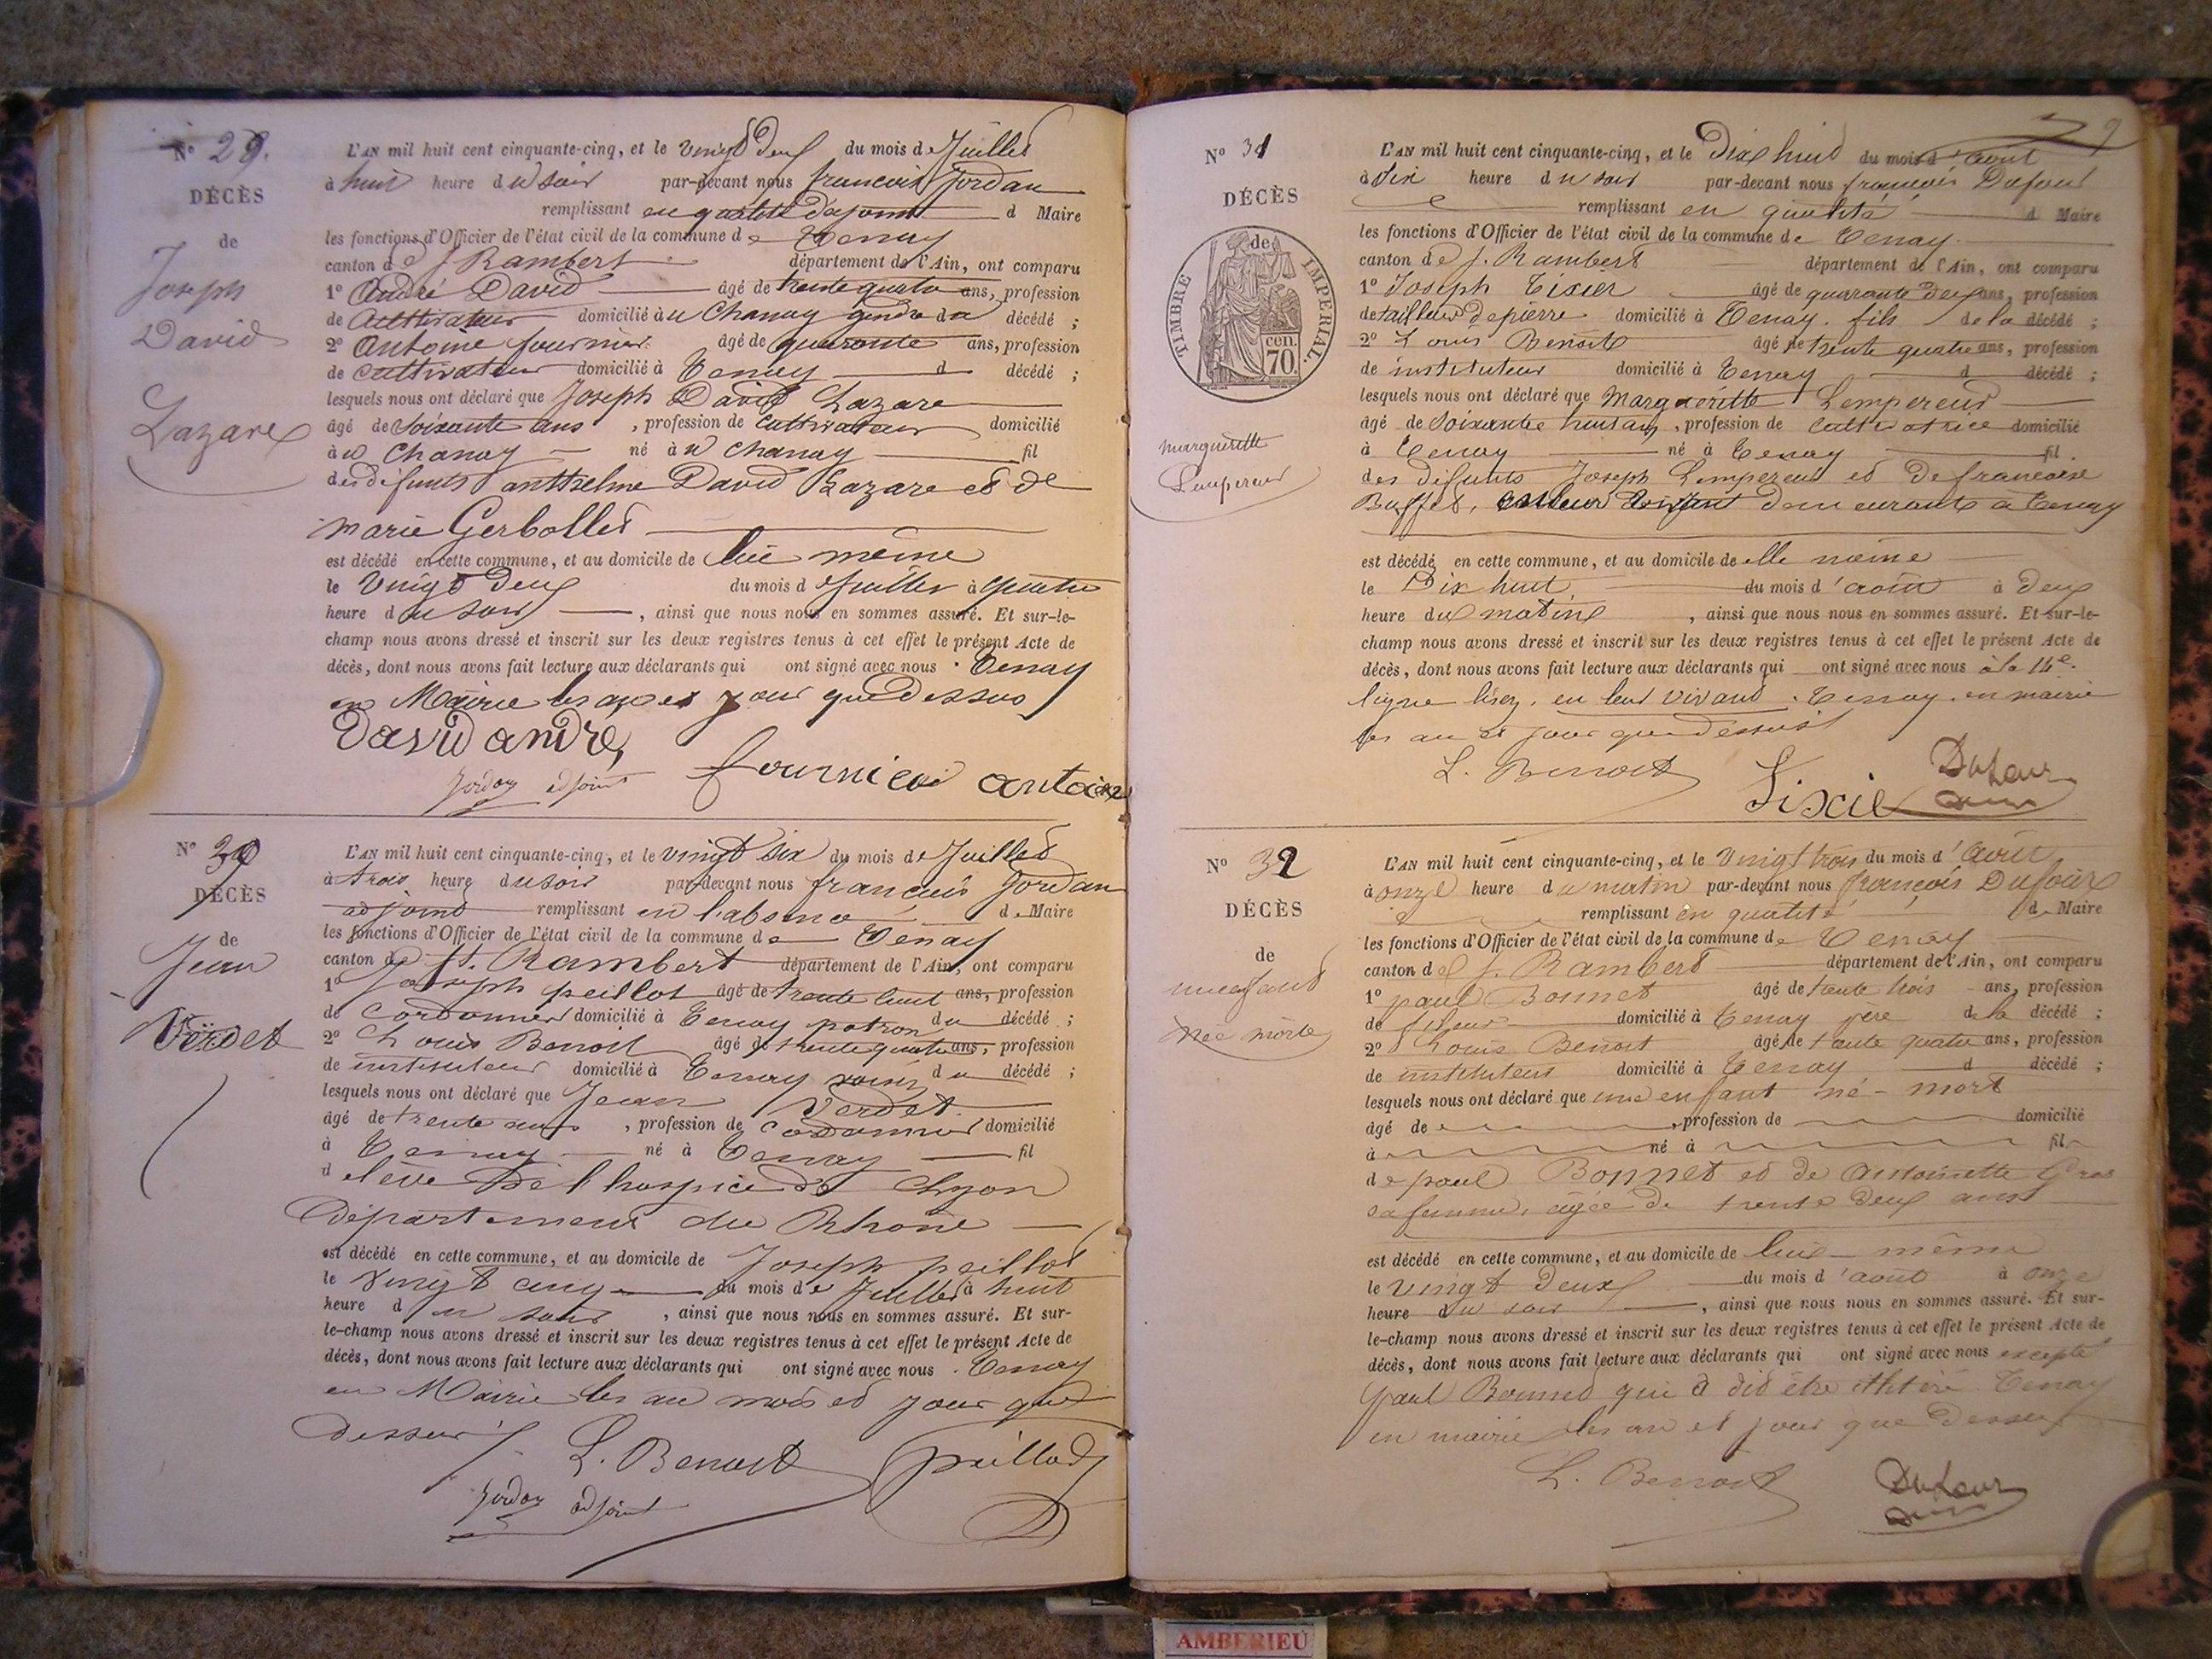 N° 29.
DÉCÈS
de
Joseph
David
Lazare
L'AN mil huit cent cinquante-cinq, et le vingt deux du mois de Juillet
à huit heure du soir par-devant nous francois Jordan
remplissant en qualité d'ajoint d Maire
les fonctions d'Officier de l'état civil de la commune de Tenay
canton de J. Rambert département de l'Ain, ont comparu
1° André David âgé de trente quatre ans, profession
de Cultivateur domicilié à u Chanay gendre du décédé ;
2° Antoine fournier âgé de quarante ans, profession
de cultivateur domicilié à Tenay d décédé ;
lesquels nous ont déclaré que Joseph David Lazare
âgé de soixante ans, profession de cultivateur domicilié
à u Chanay né à u chanay fil
des défunts anthelme David Lazare et de
marie Gerbollet
est décédé en cette commune, et au domicile de lui même
le vingt deux du mois de Juillet à quatre
heure du soir, ainsi que nous nous en sommes assuré. Et sur-le-
champ nous avons dressé et inscrit sur les deux registres tenus à cet effet le présent Acte de
décès, dont nous avons fait lecture aux déclarants qui ont signé avec nous. Tenay
en Mairie les an et jour que dessus
David andre,
Jordan adjoint fournier antoine
N° 30
DÉCÈS
de
Jean
Verdet
L'AN mil huit cent cinquante-cinq, et le vingt six du mois de Juillet
à trois heure du soir par-devant nous francois Jordan
adjoint remplissant en l'absence de Maire
les fonctions d'Officier de l'état civil de la commune de Tenay
canton de St. Rambert département de l'Ain, ont comparu
1° Joseph peillot âgé de trente huit ans, profession
de Cordonnier domicilié à Tenay patron du décédé ;
2° Louis Benoit âgé de trente quatre ans, profession
de instituteur domicilié à Tenay voisin du décédé ;
lesquels nous ont déclaré que Jean Verdet
âgé de trente ans, profession de Cordonnier domicilié
à Tenay né à Tenay fil
d élève de l'hospice de Lyon
département du Rhône
est décédé en cette commune, et au domicile de Joseph peillot
le vingt cinq du mois de Juillet à huit
heure d u soir, ainsi que nous nous en sommes assuré. Et sur-
le-champ nous avons dressé et inscrit sur les deux registres tenus à cet effet le présent Acte de
décès, dont nous avons fait lecture aux déclarants qui ont signé avec nous. Tenay
en Mairie les an mois et jour que
dessus
L. Benoit peillod
Jordan adjoint
N° 31
DÉCÈS
de
TIMBRE IMPERIAL.
cen.
70.
margueritte
Lempereur
9
L'AN mil huit cent cinquante-cinq, et le Dix huit du mois d'août
à six heure du soir par-devant nous francois Dufour
remplissant en qualité d Maire
les fonctions d'Officier de l'état civil de la commune de Tenay
canton de J. Rambert département de l'Ain, ont comparu
1° Joseph Tixier âgé de quarante deux ans, profession
de tailleur de pierre domicilié à Tenay. fils de la décédé ;
2° Louis Benoit âgé de trente quatre ans, profession
de instituteur domicilié à Tenay d décédé ;
lesquels nous ont déclaré que Margueritte Lempereur
âgé de soixante huit ans, profession de cultivatrice domicilié
à Tenay né à Tenay fil
des défunts Joseph Lempereur et De francoise
Buffet, demeurants à Tenay
est décédé en cette commune, et au domicile de elle même
le Dix huit du mois d'août à deux
heure du matin, ainsi que nous nous en sommes assuré. Et sur-le-
champ nous avons dressé et inscrit sur les deux registres tenus à cet effet le présent Acte de
décès, dont nous avons fait lecture aux déclarants qui ont signé avec nous à la 14e.
ligne lisez. en leur vivant. Tenay. en mairie
les an et jour que dessus
L. Benoit Tixie Dufour
N° 32
DÉCÈS
de
une enfant
née morte
L'AN mil huit cent cinquante-cinq, et le vingt trois du mois d'août
à onze heure du matin par-devant nous françois Dufour
remplissant en qualité de Maire
les fonctions d'Officier de l'état civil de la commune de Tenay
canton de J. Rambert département de l'Ain, ont comparu
1° paul Bonnet âgé de trente trois ans, profession
de domicilié à Tenay père de la décédé ;
2° Louis Benoit âgé de trente quatre ans, profession
de instituteur domicilié à Tenay d décédé ;
lesquels nous ont déclaré que une enfant né-mort
âgé de , profession de domicilié
à né à fil
de paul Bonnet et de Antoinette Gras
sa femme, agée de trente deux ans
est décédé en cette commune, et au domicile de lui-même
le vingt deux du mois d'août à onze
heure du soir, ainsi que nous nous en sommes assuré. Et sur-
le-champ nous avons dressé et inscrit sur les deux registres tenus à cet effet le présent Acte de
décès, dont nous avons fait lecture aux déclarants qui ont signé avec nous excepté
paul Bonnet qui a dit être ilitéré. Tenay
en mairie les an et jour que dessus
L. Benoit Dufour
AMBERIEU